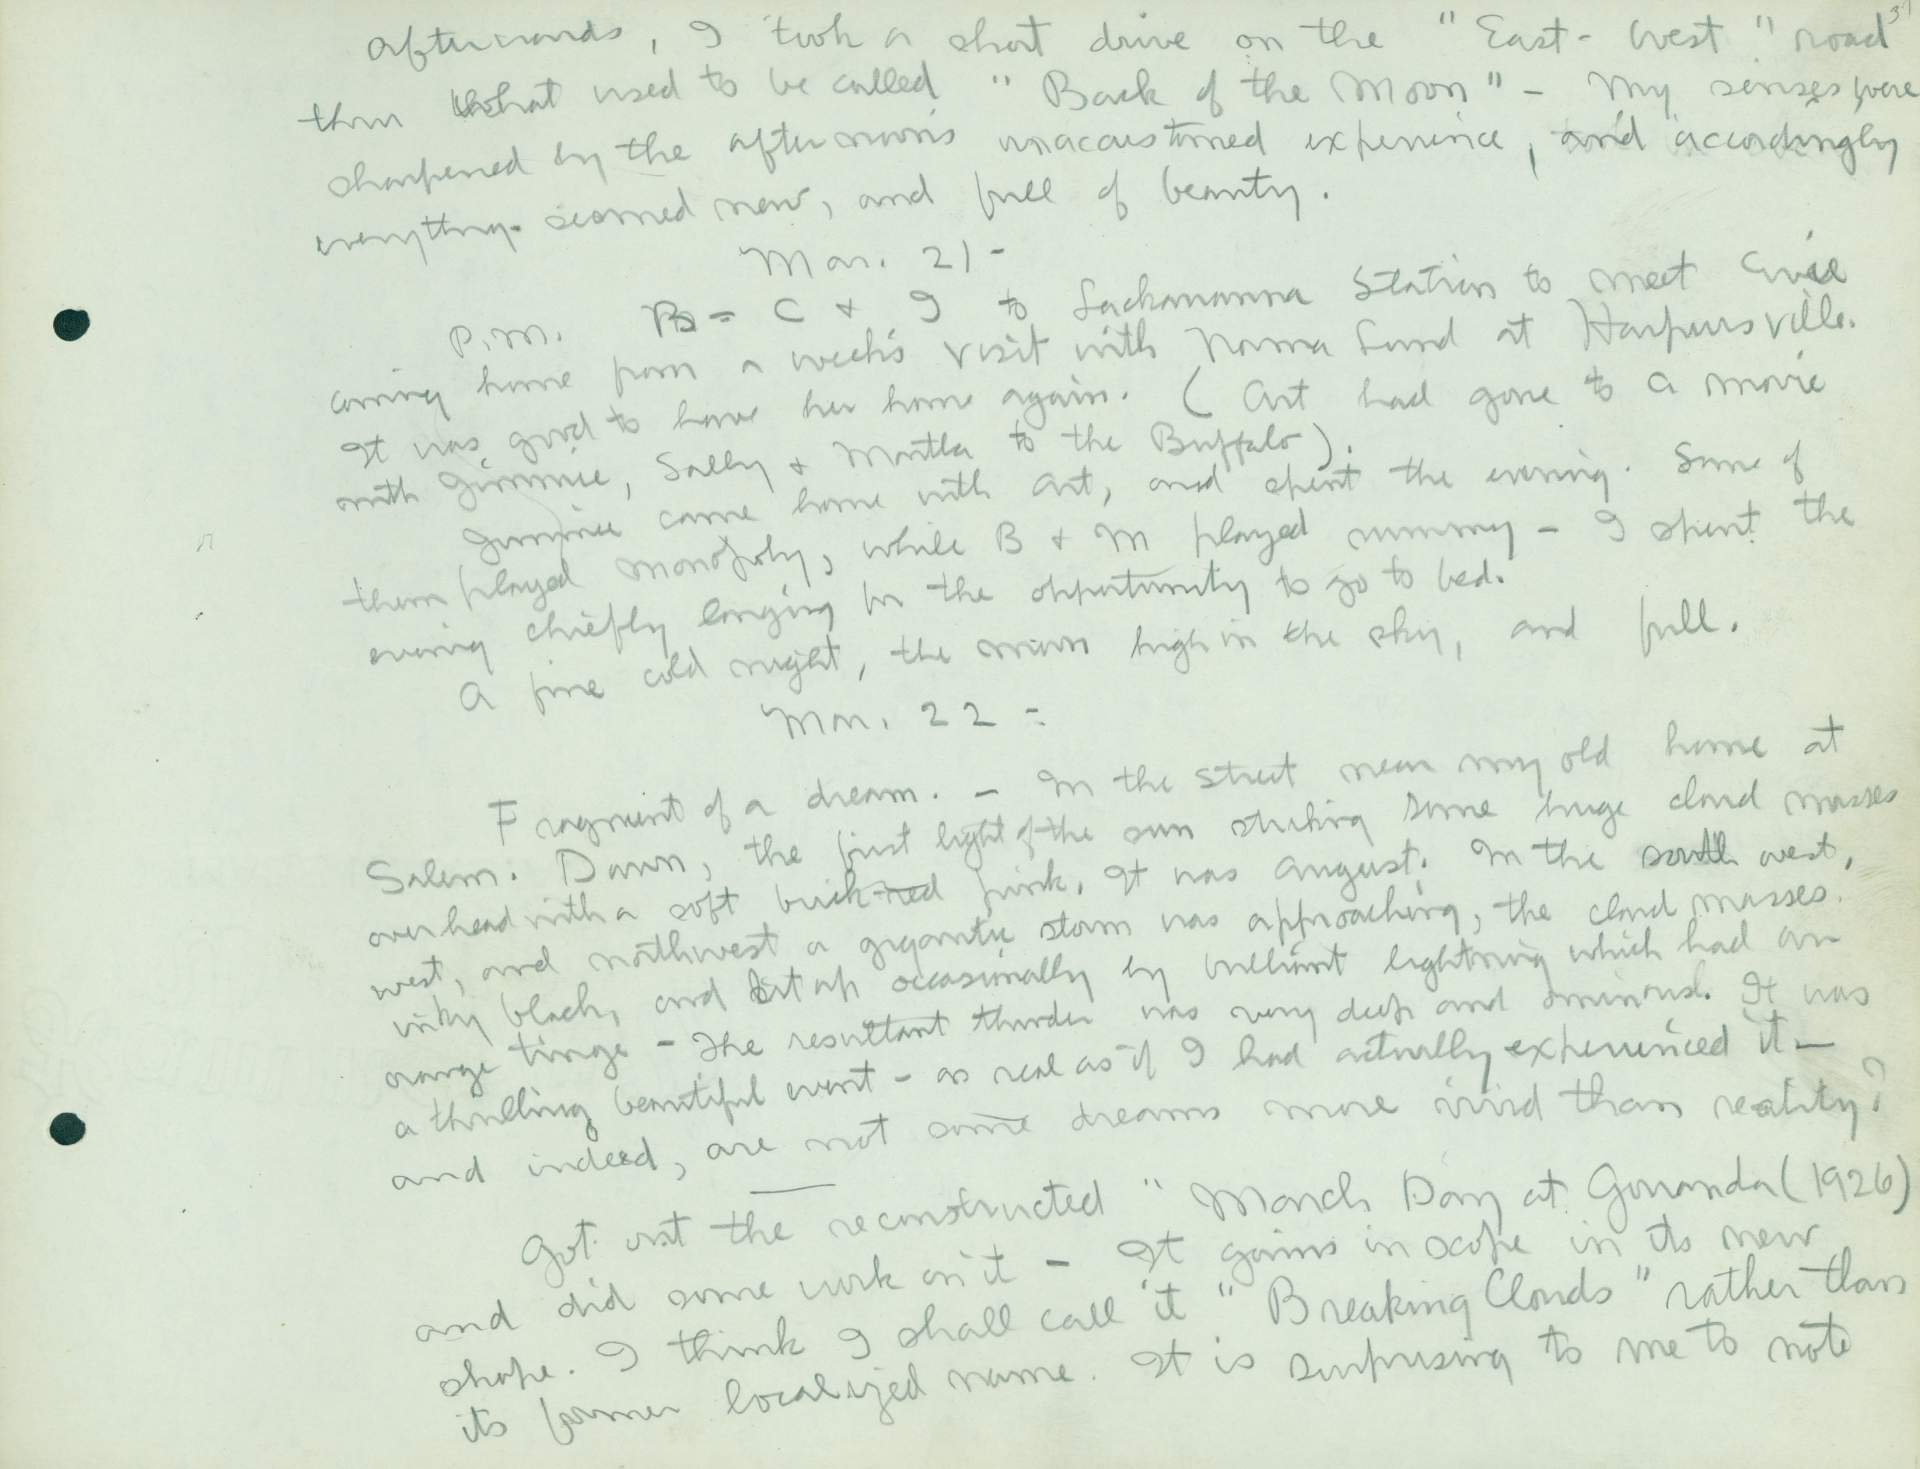 37
Afterwards, I took a short drive on the "East-West" road
thru what used to be called "Back of the Moon" - My senses were
sharpened by the afternoon's unaccustomed experience, and accordingly
everything seemed new, and full of beauty.
Mar. 21 -
P.M. B - C & I to Lackawanna Station to meet
coming home from a week's visit with Norma Lund at Harpursville.
It was good to have her home again. (Art had gone to a movie
with Jimmie, Sally & Martha to the Buffalo).
Jimmie came home with Art, and spent the evening. Some of
them played monopoly, while B & M played rummy - I spent the
evening chiefly longing for the opportunity to go to bed.
A fine cold night, the moon high in the sky, and full.
Mar. 22 -
Fragment of a dream. - In the street near my old home at
Salem. Dawn, the first light of the sun striking some huge cloud masses
overhead with a soft brick-red pink. It was August. In the south west,
west, and northwest a gigantic storm was approaching, the cloud masses
inky black, and lit up occasionally by brilliant lightning which had an
orange tinge - The resultant thunder was very deep and ominous. It was
a thrilling beautiful event - as real as if I had actually experienced it -
and indeed, are not some dreams more vivid than reality?
Got out the reconstructed "March Day at Gowanda (1926)
and did some work on it - It gains in scope in its new
shape. I think I shall call it "Breaking Clouds" rather than
its former localized name. It is surprising to me to note